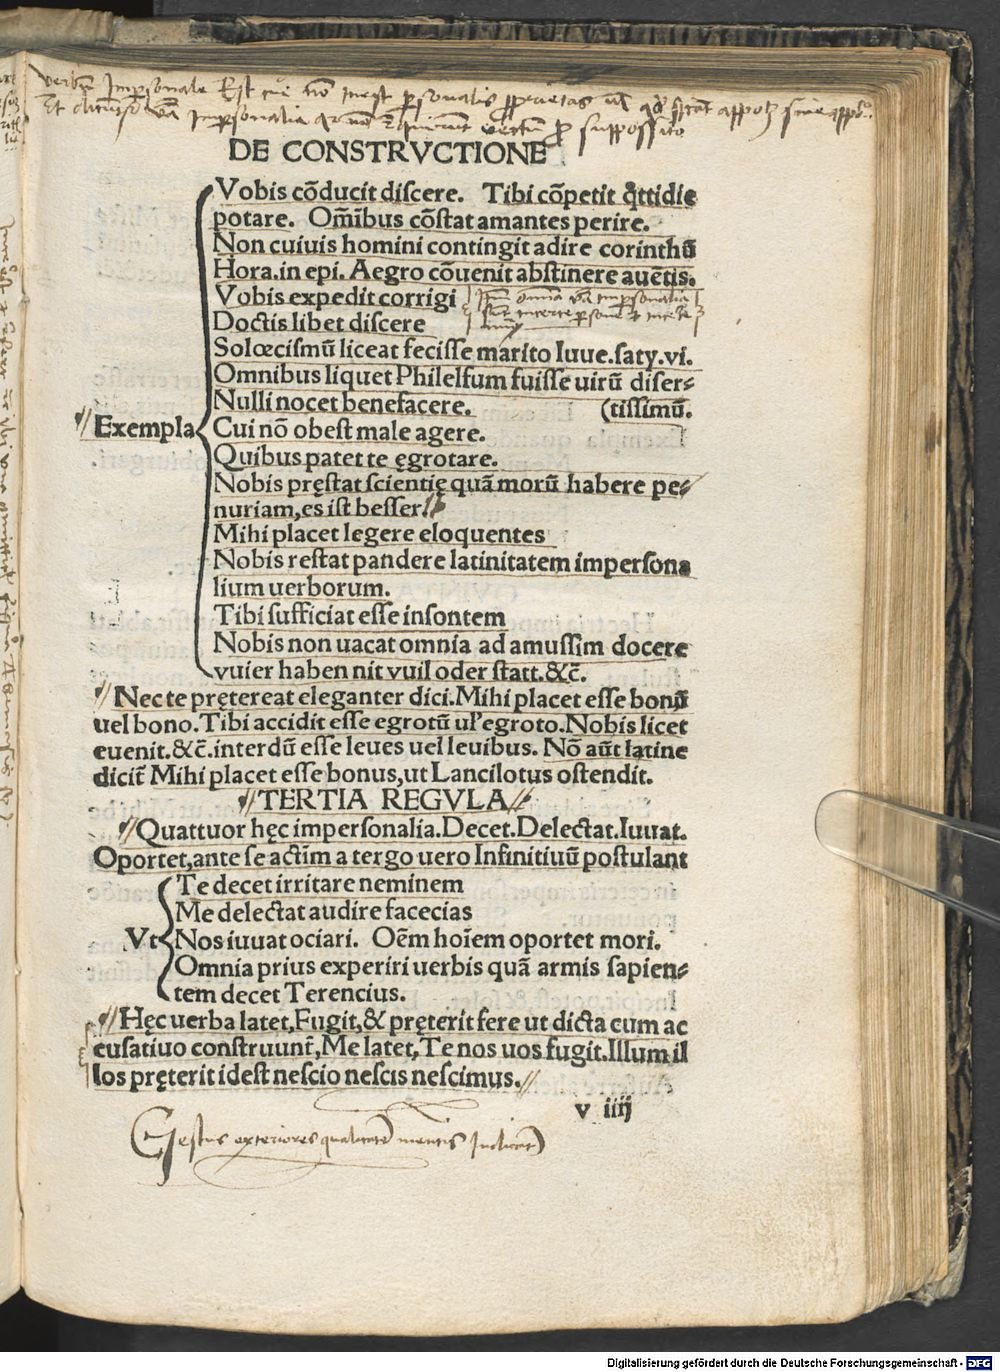 DE CONSTRVCTIONE
Vobis cōducit discere. Tibi cōpetit q̄ttidie
potare. Om̄ībus cōstat amantes perire.
Non cuiuis homini contingit adire corinthū
Hora.in epi. Aegro cōuenit abstinere auētis.
Vobis expedit corrigi
Doctis libet discere
Solœcismū liceat fecisse marito Iuue.saty.vi.
Omnibus liquet Philelfum fuisse uirū diser-
Nulli nocet benefacere. (tissimū.
Exempla Cui nō obest male agere.
Quibus patet te ęgrotare.
Nobis pręstat scientię quā morū habere pe-
nuriam,es ist besser.
Mihi placet legere eloquentes
Nobis restat pandere latinitatem impersona
lium uerborum.
Tibi sufficiat esse insontem
Nobis non uacat omnia ad amussim docere
vuier haben nit vuil oder statt.&c̄.
Nec te pręterea eleganter dici.Mihi placet esse bonū
uel bono.Tibi accidit esse egrotū ul'egroto.Nobis licet
euenit.&c̄.interdū esse leues uel leuibus. Nō aūt latine
dicit̄ Mihi placet esse bonus,ut Lancilotus ostendit.
TERTIA REGVLA
Quattuor hęc impersonalia.Decet.Delectat.Iuuat.
Oportet,ante se actīm a tergo uero Infinitiuū postulant
Te decet irritare neminem
Me delectat audire facecias
Vt Nos iuuat ociari. Oēm hoīem oportet mori.
Omnia prius experiri uerbis quā armis sapien-
tem decet Terencius.
Hęc uerba latet,Fugit,& pręterit fere ut dicta cum ac
cusatiuo construunt̄,Me latet,Te nos uos fugit.Illum il
los pręterit idest nescio nescis nescimus.
v iiij
Gestus exteriores qualitatē mentis Indicant
Digitalisierung gefördert durch die Deutsche Forschungsgemeinschaft - DFG